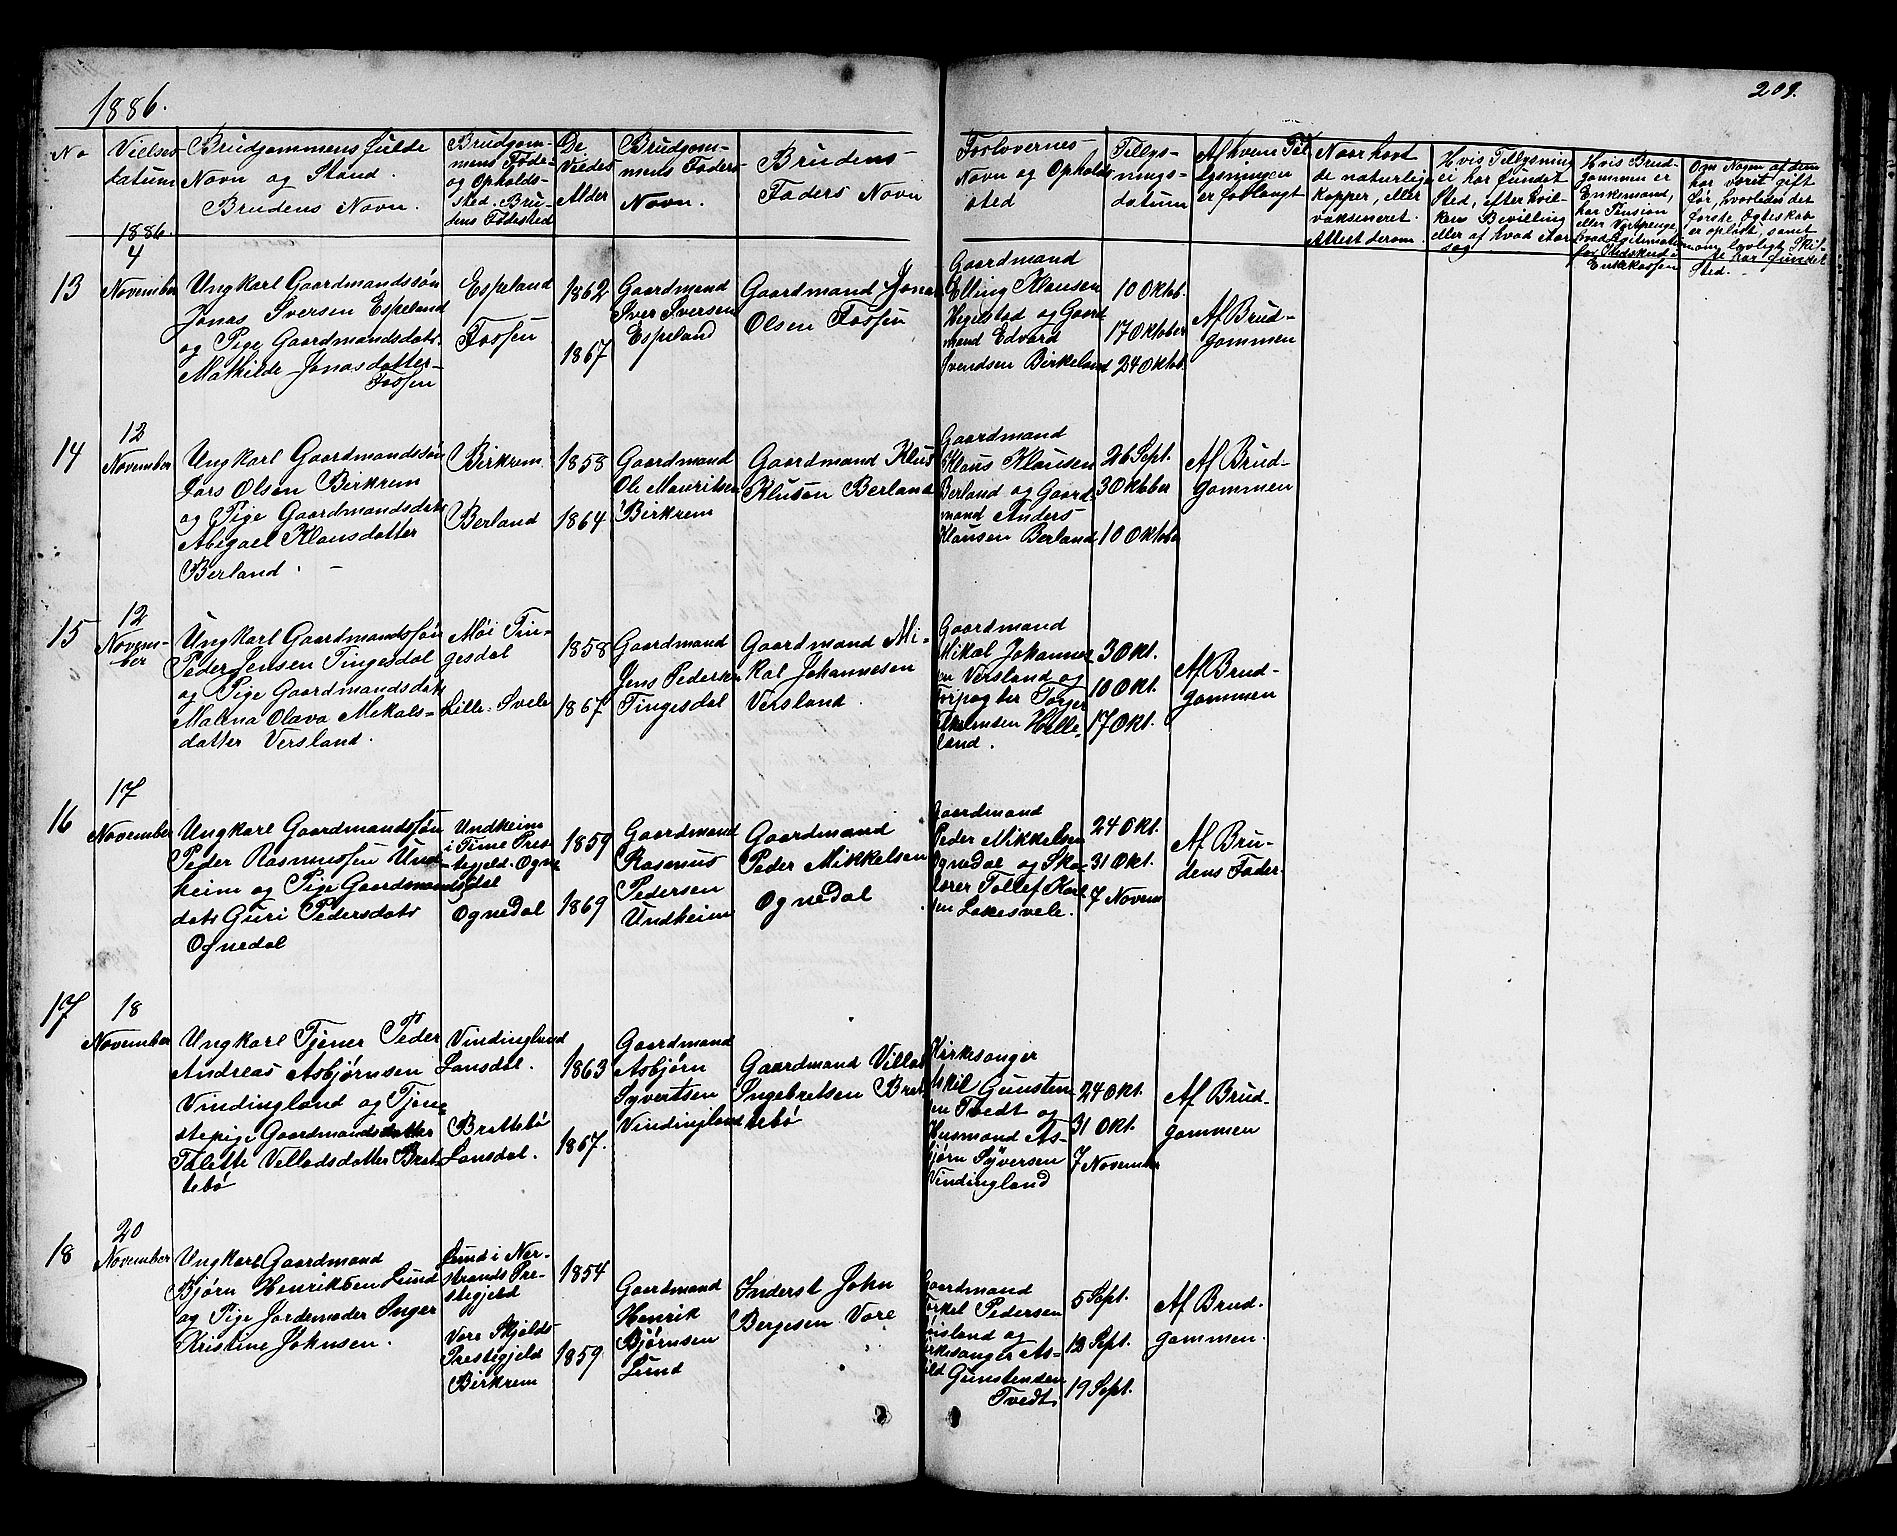 1886.
209.
No
Vielses
datum
Brudgommens fulde
Navn og Stand.
Brudens Navn.
Brudgom-
mens Føde-
og Opholds-
sted. Bru-
dens Fødested
De
Viedes
Alder
Brudgom-
mens Faders
Navn.
Brudens
Faders Navn
Forlovernes
Navn og Opholds
sted
Tillys-
nings-
datum
Af hvem Til
lysningen
er forlangt
Naar havt
de naturlige
kopper, eller
vaksineret.
Attest derom
Hvis Tillysning
ei har fundet
Sted, efter hvil-
ken Bevilling
eller af hvad Aar
sag
Hvis Brud-
gommen er
Enkemand,
har Pension
eller
for Skudsked i
Enkekassen
Om Nogen af dem
har været gift
før, hvorledes det
første Egteskab
er opløst, samt
om lovligt Skif-
te har fundet
Sted.
1886.
13
4
November
Ungkarl Gaardmandssøn
Jonas Iversen Espeland
og Pige Gaardmandsdatr
Mathilde Jonasdatter
Fossen
Espeland
Fossen
1862
1867
Gaardmand
Iver Iversen
Espeland
Gaardmand Jonas
Olsen Fossen
Gaardmand
Elling Klausen
Hegelstad og Gaard
mand Edvard
Svendsen Birkeland
10 Oktb.
17 Oktober
24 Oktb.
Af Brud-
gommen
14
12
November
Ungkarl Gaardmandssøn
Lars Olsen Birkrem
og Pige Gaardmandsdatr
Abigael Klausdatter
Berland
Birkrem
Berland
1858
1864
Gaardmand
Ole Mauritsen
Birkrem
Gaardmand Klus
Klusen Berland
Gaardmand
Klaus Klausen
Berland og Gaard-
mand Anders
Klausen Berland
26 Sept.
3 Oktober
10 Oktober
Af Brud-
gommen
15
12
Novem-
ber
Ungkarl Gaardmandssøn
Peder Jensen Tingesdal
og Pige Gaardmandsdatr
Malena Olava Mekals-
datter Versland.
Møi Tin-
gesdal
Lille Svele
1858
1867
Gaardmand
Jens Pedersen
Tingesdal
Gaardmand Mi-
kal Johannesen
Versland.
Gaardmand
Mikal Johannes
en Versland og
Forpagter Torger
Helle-
land.
3 Okt.
10 Okt.
17 Okt.
Af Brud-
gommen
16
17
November
Ungkarl Gaardmandssøn
Peder Rasmussen Und-
heim og Pige Gaardmands
datr Guri Pedersdatr
Ognedal
Undheim
i Time Pres-
tegjeld. Ogne
dal
Ognedal
1859
1869
Gaardmand
Rasmus
Pedersen
Undheim
Gaardmand
Peder Mikkelsen
Ognedal
Gaardmand
Peder Mikkelsen
Ognedal og Sko-
lærer Tollef Karl
sen Lakesvele.
24 Okt.
31 Okt.
7 Novem
Af Bru-
dens Fader
17
18
November
Ungkarl Tjener Peder
Andreas Asbjørnsen
Vindingland og Tjene
stepige Gaardmandsdatter
Talette Velladsdatter Brat
tebø
Vindingland
Lansdal.
Brattebø
Lansdal.
1863
1867.
Gaardmand
Asbjørn
Syvertsen
Vindingland
Gaardmand Villas
Ingebretsen Brat
tebø
Kirkesanger
Askil Gunsten
sen Tvedt og
Husmand As-
bjørn Syversen
Vindingland
24 Okt.
31 Okt.
7 November
Af Brud-
gommen
18
20
November
Ungkarl Gaardmand
Bjørn Henriksen Lund
og Pige Jordemoder Inger
Kristine Johnsen.
Lund i Ner-
strands Pre-
stegjeld
Vore Skjolds
Prestegjeld
Birkrem
1854
1859
Gaardmand
Henrik
Bjørnsen
Lund
Inderst John
Bergesen Vore
Gaardmand
Torkel Pedersen
og
Kirkesanger As-
kild Gunstensen
Tvedt
5 Sept.
12 Sept.
19 Sept.
Af Brud.
gommen.